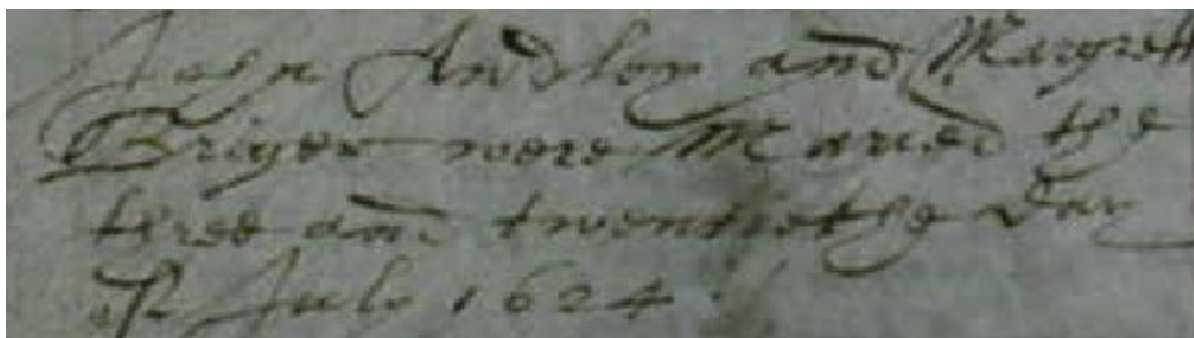 John Andlay and Margrett
Briger were Maried the
three and twentiethe day
of July 1624